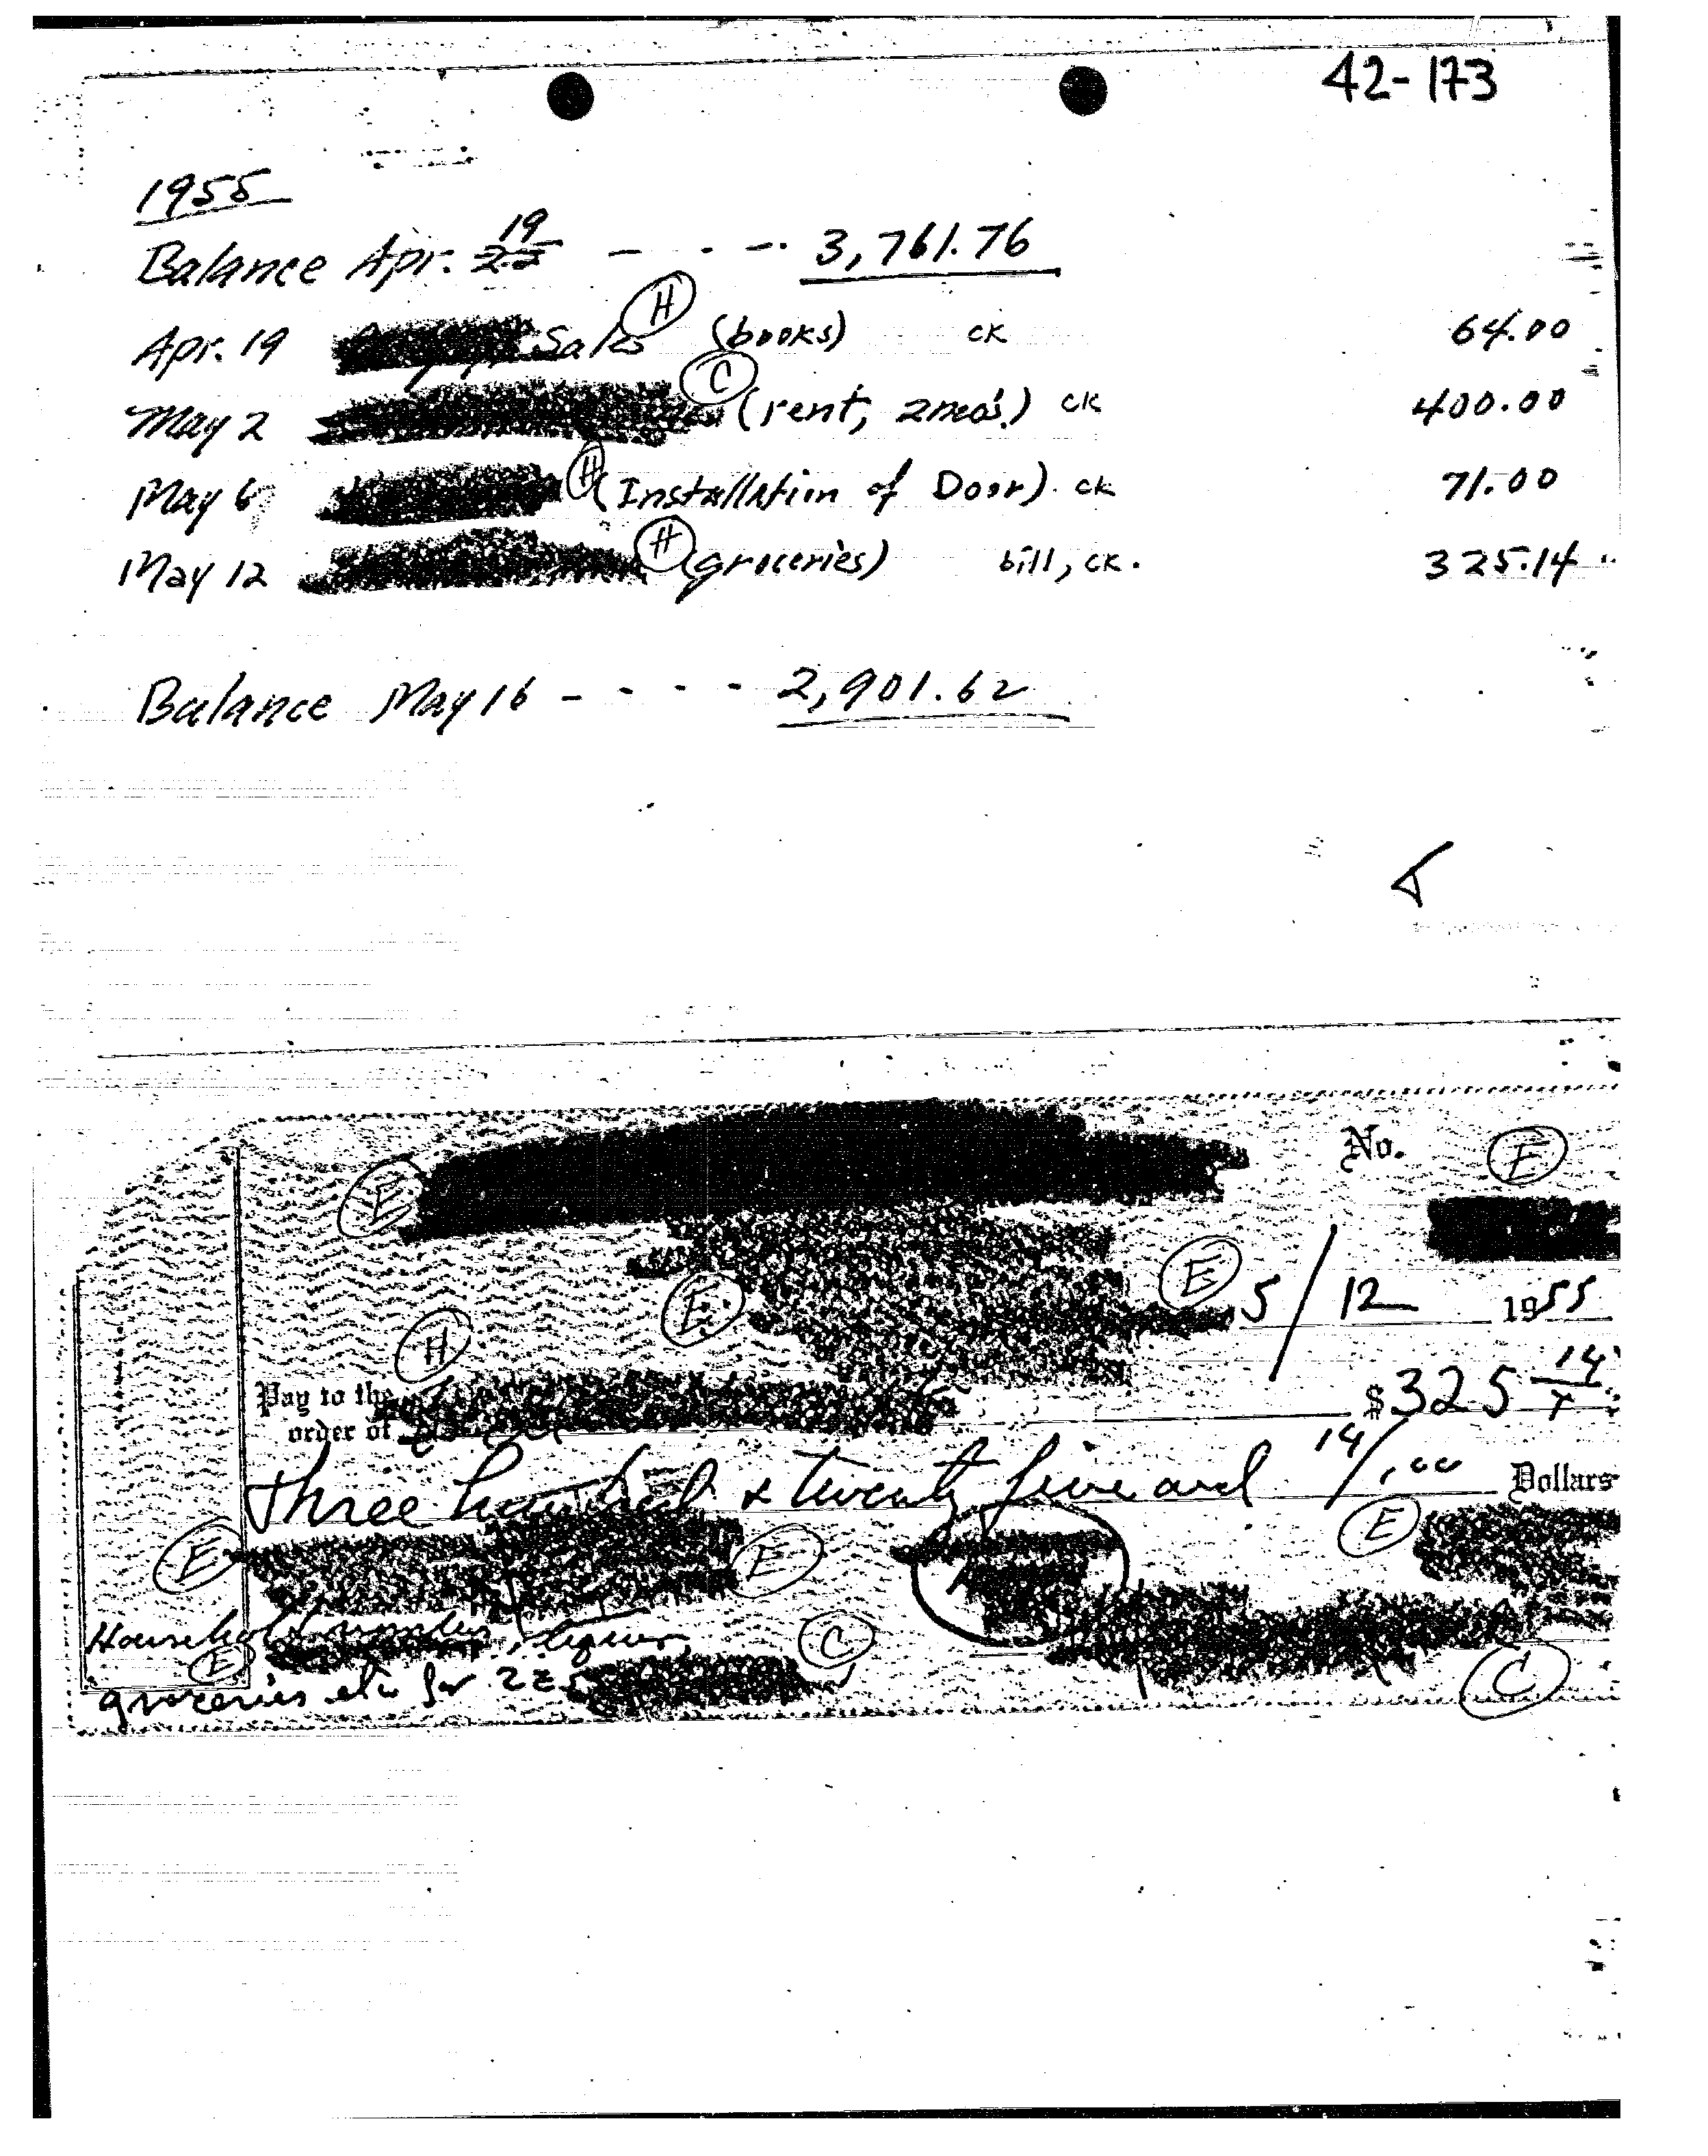 42-173
1955
19
Balance Apr. 22 - - - - 3,761.76
Apr. 19 Sales H (books) ck 64.00
May 2 C (rent, 2 mo's.) ck 400.00
May 6 H (Installation of Door). ck 71.00
May 12 H (groceries) bill, ck. 325.14
Balance May 16 - - - - 2,901.62
No. E
E
E E 5/12 1955
H
Pay to the
order of $325 14/x
Three hundred & twenty five and 14/100 Dollars
E E E
Household liquor, C
E
groceries etc for C